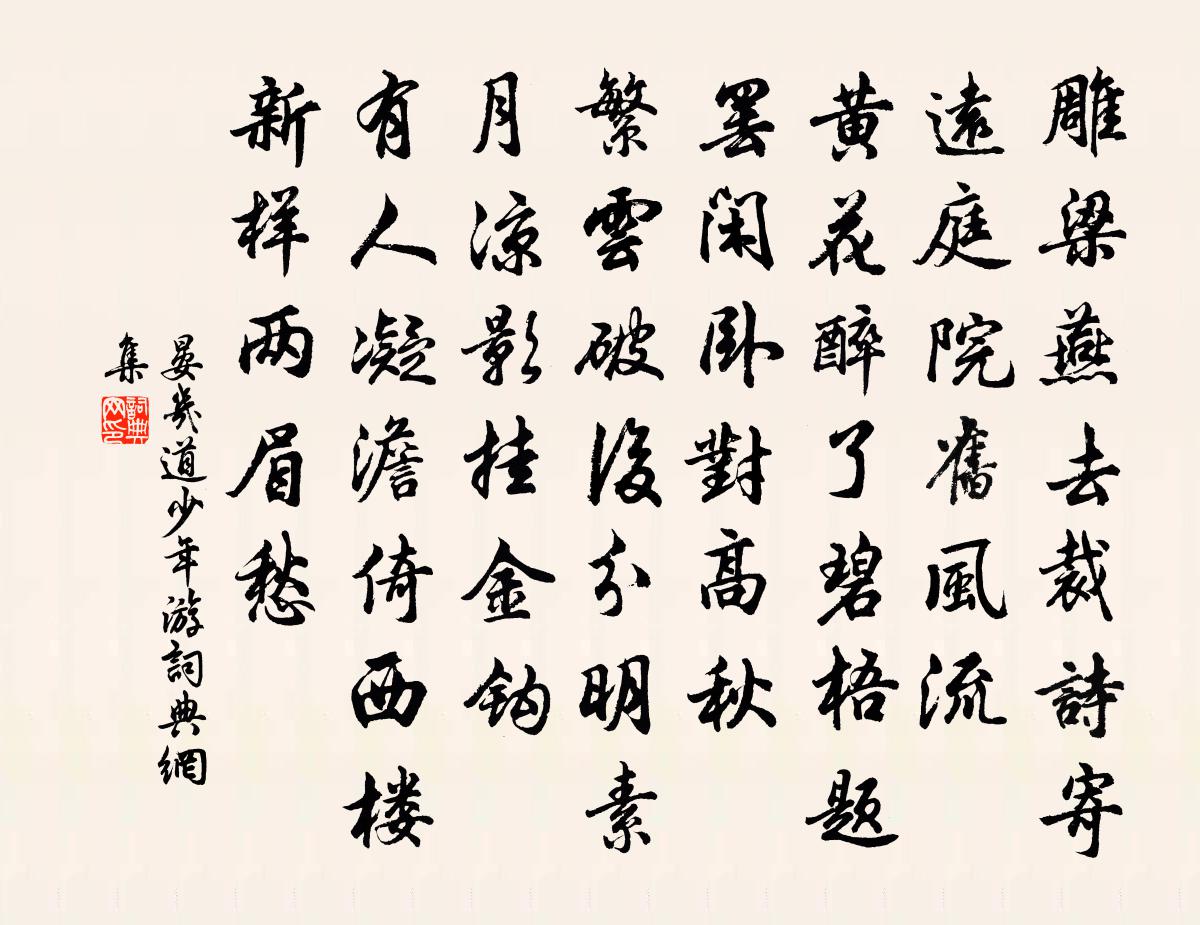 雕梁燕去裁詩寄
遠庭院舊風流
黄花醉了碧梧題
罢闲卧對高秋
繁雲破後分明素
月凉影挂金鈎
有人凝澹倚西楼
新样两眉愁
晏幾道少年游詞典網
集
詞典网印